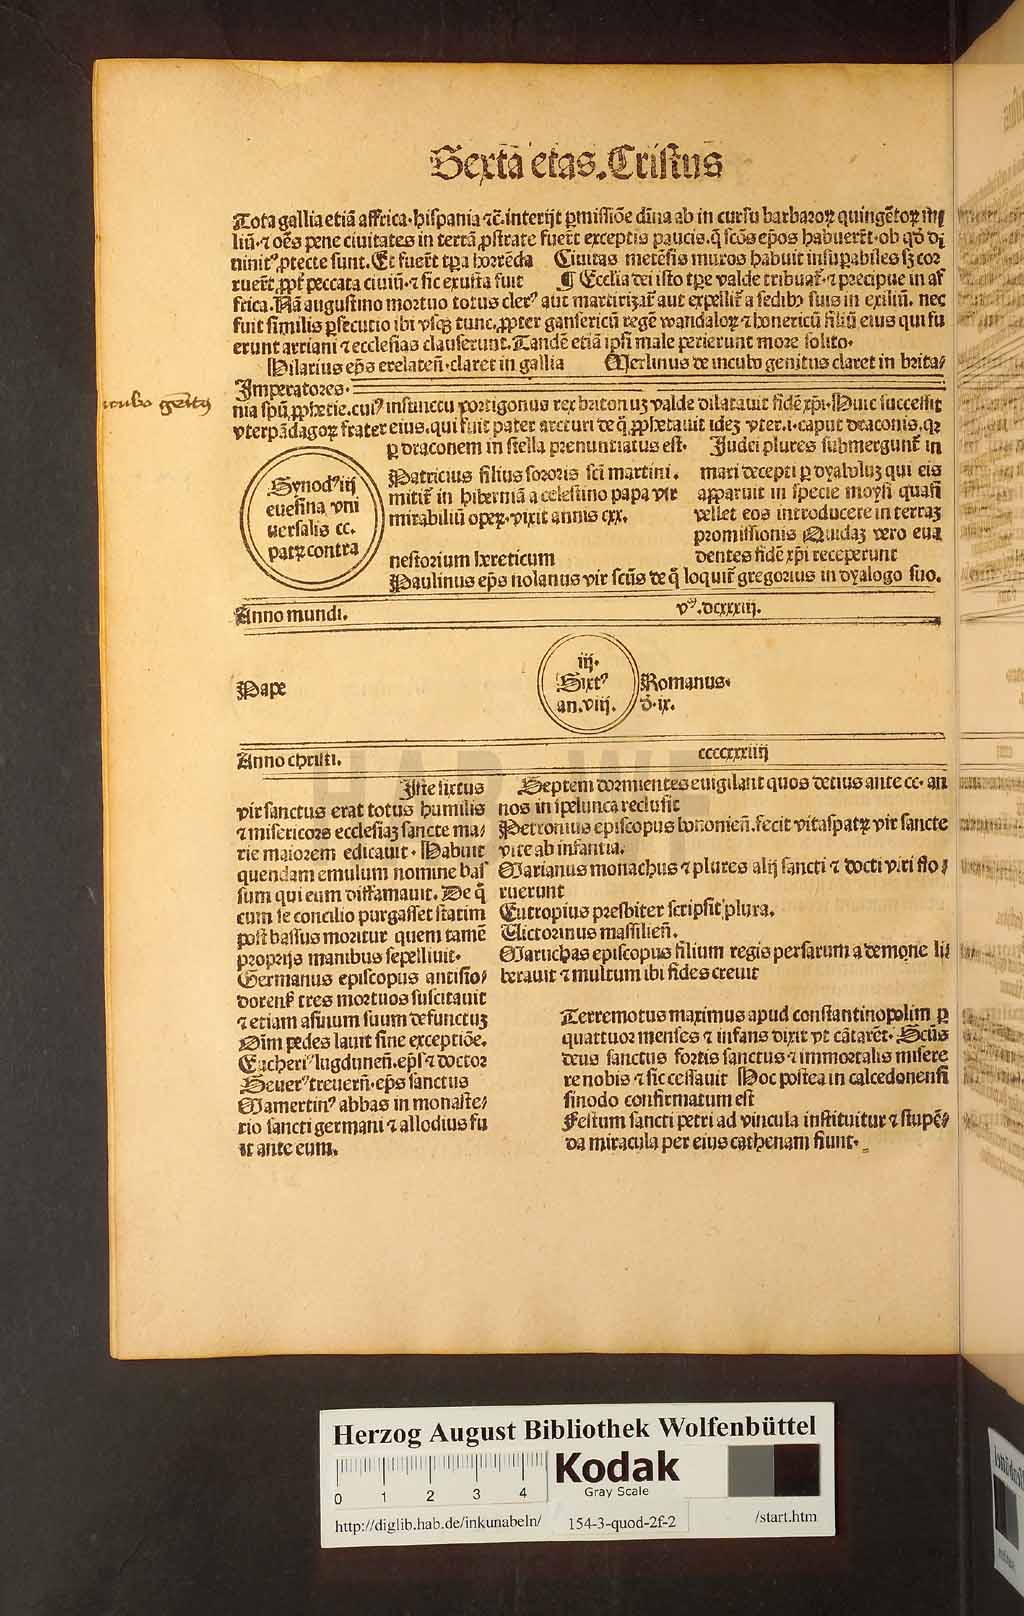 Sextā etas. Cristus
Tota gallia etiā affrica·hispania ꝛc̄.interijt ꝑmissiōe diīna ab in cursu barbaroꝝ quingētoꝝ mi
liū·⁊ oēs pene ciuitates in terrā ꝓstrate fuer̄t exceptis paucis·q̄ scōs ep̄os habuer̄t·ob qd̄ di
ninitꝰ ꝓtecte sunt. Et fuer̄t tp̄a horrēda Ciuitas metēsis muros habuit insuꝑabiles sꝫ cor
ruer̄t ꝓpt̄ peccata ciuiū·⁊ sic exusta fuit ¶ Ecclia dei isto tp̄e valde tribuat̄·⁊ precipue in af
frica. Nā augustino mortuo totus clerꝰ aut martirizat̄ aut expellit̄ a sedibꝰ suis in exiliū. nec
fuit similis ꝑsecutio ibi vsqꝫ tunc.ꝓpter gansericū regē wandaloꝝ ⁊ honericū filiū eius qui fu
erunt arriani ⁊ ecclesias clauserunt. Tandē etiā ipsi male perierunt more solito·
Hilarius ep̄s erelateñ·claret in gallia Merlinus de incubo genitus claret in brita/
Imperatores·
incubo genitꝰ
nia spū ꝓphetie.cuiꝰ insunctu vortigonus rex britonuꝫ valde dilatauit fidē xp̄i·Huic successit
vterpādagoꝝ frater eius.qui fuit pater arcturi de q̄ ꝓphetauit ideꝫ vter.i·caput draconis.qꝛ
ꝑ draconem in stella prenuntiatus est· Judei plures submergunt̄ in
Synodꝰ iij
euesina vni
uersalis cc.
patꝝ contra
Patricius filius sororis sci martini.
mitit̄ in hiberniā a celestino papa vir
mirabiliū opeꝝ·vixit annis cxx.
nestorium hereticum
mari decepti ꝑ dyaboluꝫ qui eis
apparuit in specie moysi quasi
vellet eos introducere in terraꝫ
promissionis Quidaꝫ vero eua
dentes fidē xp̄i receperunt
Paulinus ep̄s nolanus vir scūs de q̄ loquit̄ gregorius in dyalogo suo.
Anno mundi. vᵐ.dcxxxiij.
Pape
iij·
Sixtꝰ
an.viij.
Romanus·
d̄·ix.
Anno christi. ccccxxxiiij
Iste sixtus
vir sanctus erat totus humilis
⁊ misericors ecclesiaꝫ sancte ma/
rie maiorem edicauit·Habuit
quendam emulum nomine bas
sum qui eum diffamauit. De q̄
cum se concilio purgasset statim
post bassus moritur quem tamē
proprijs manibus sepelliuit·
Germanus episcopus antisio/
dorens̄ tres mortuos suscitauit
⁊ etiam asinum suum defunctuꝫ
Oīm pedes lauit sine exceptiōe.
Eucheriꝰ lugduneñ.ep̄s ⁊ doctor
Seuerꝰ treuerñ·ep̄s sanctus
Mamertinꝰ abbas in monaste/
rio sancti germani ⁊ allodius fu
it ante eum.
Septem dormientes euigilant quos decius ante cc·an
nos in spelunca reclusit
Petronius episcopus bononieñ.fecit vitaspatꝝ vir sancte
vite ab infantia.
Marianus monachus ⁊ plures alij sancti ⁊ docti viri flo/
ruerunt
Eutropius presbiter scripsit plura.
Uictorinus massilieñ.
Maruchas episcopus filium regis persarum a demone li
berauit ⁊ multum ibi fides creuit
Terremotus maximus apud constantinopolim ꝑ
quattuor menses ⁊ infans dixit vt cātaret̄·Scūs
deus sanctus fortis sanctus ⁊ immortalis misere
re nobis ⁊ sic cessauit Hoc postea in calcedonensi
sinodo confirmatum est
Festum sancti petri ad vincula instituitur ⁊ stupē/
da miracula per eius cathenam fiunt·
HAB WF
Herzog August Bibliothek Wolfenbüttel
0 1 2 3 4
Kodak
Gray Scale
http://diglib.hab.de/inkunabeln/ 154-3-quod-2f-2 /start.htm